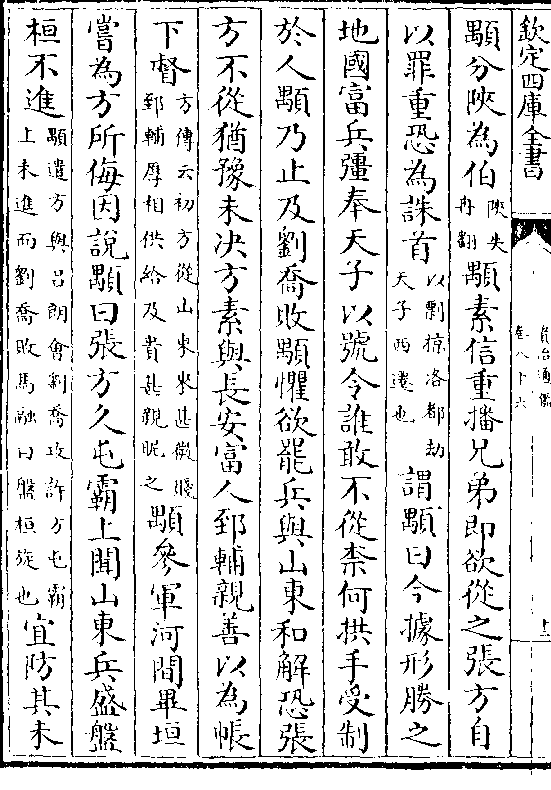 欽定四庫全書
資治通鑑
卷八十六
十二
顒分陜為伯陜失冉翻顒素信重播兄弟即欲從之張方自
以罪重恐為誅首以剽掠洛都劫天子西遷也謂顒曰今據形勝之
地國富兵彊奉天子以號令誰敢不從柰何拱手受制
於人顒乃止及劉喬敗顒懼欲罷兵與山東和解恐張
方不從猶豫未决方素與長安富人郅輔親善以為帳
下督方傳云初方從山東來甚微賤郅輔厚相供給及貴甚親昵之顒參軍河間畢垣
嘗為方所侮因說顒曰張方久屯霸上聞山東兵盛盤
桓不進顒遣方與呂朗會劉喬攻許方屯霸上未進而劉喬敗馬融曰盤桓旋也宜防其未